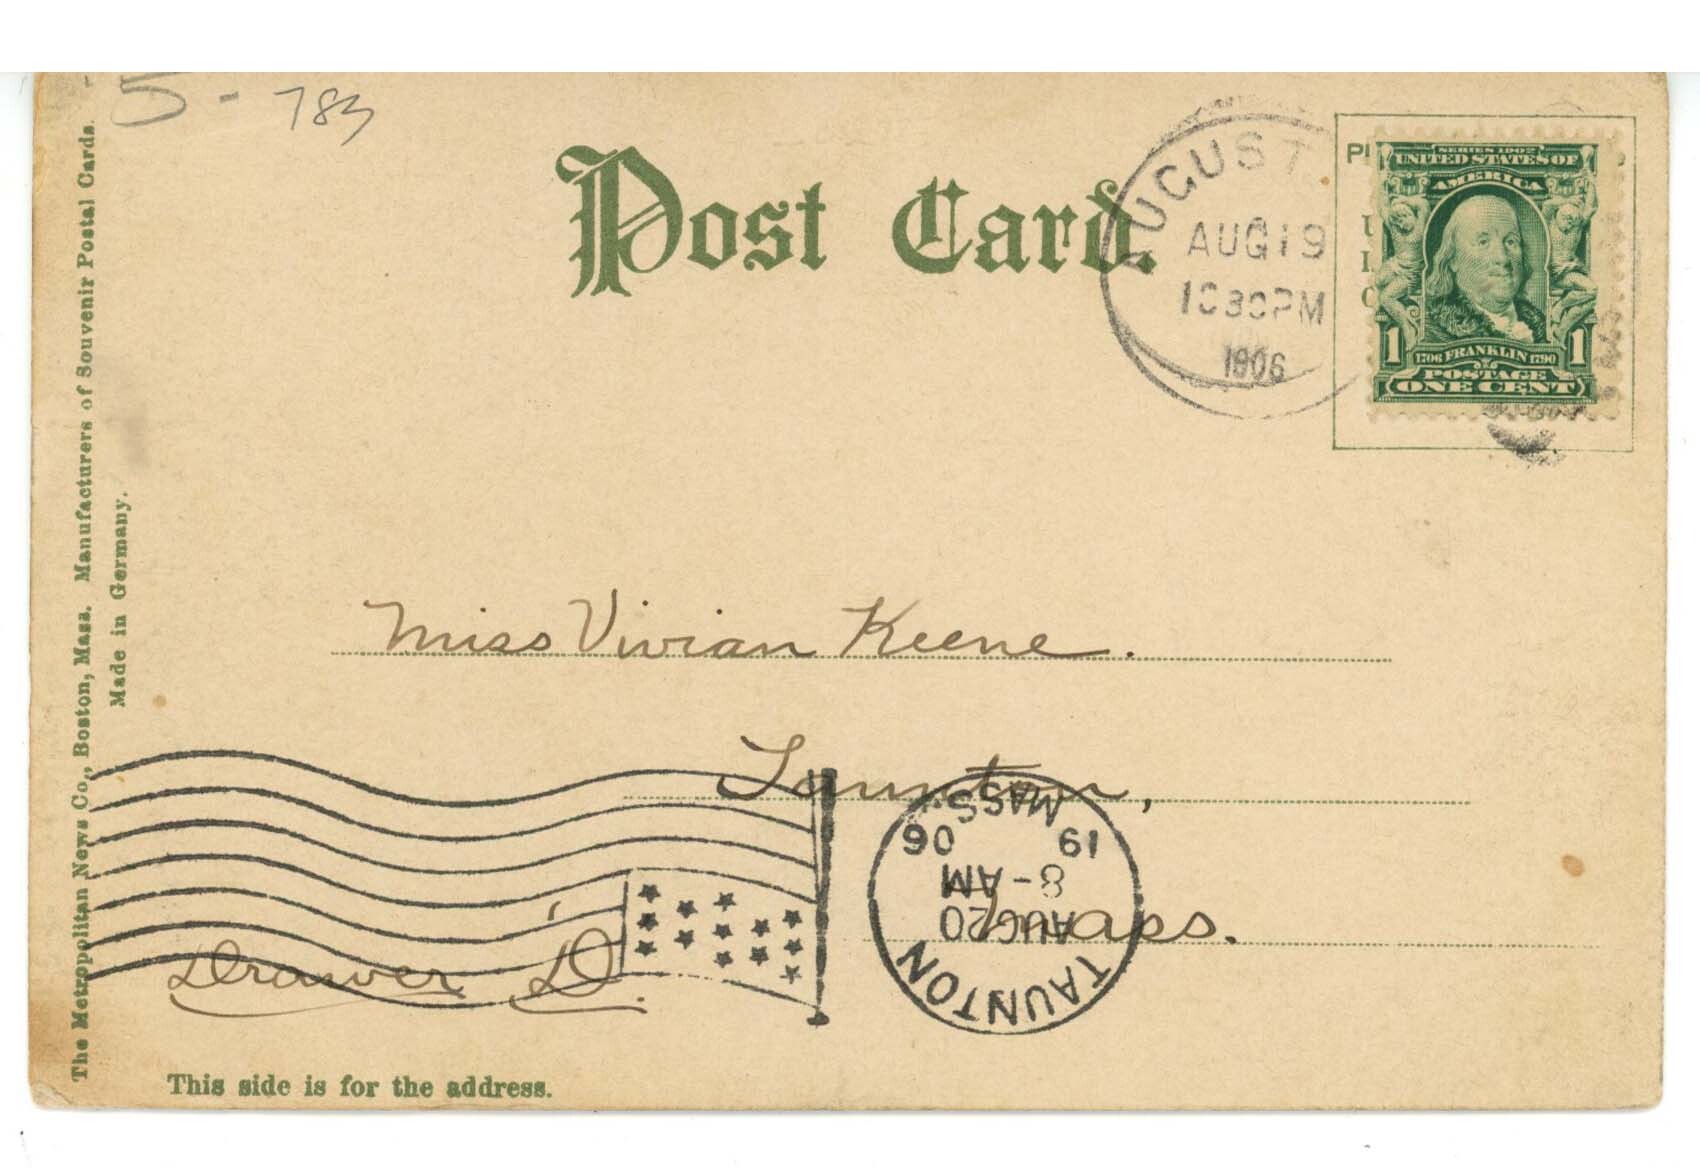 5 - 783
Post Card.
AUGUST
AUG 19
1030PM
1906
SERIES 1902
UNITED STATES OF
AMERICA
1 1706 FRANKLIN 1790 1
POSTAGE
ONE CENT
The Metropolitan News Co., Boston, Mass. Manufacturers of Souvenir Postal Cards.
Made in Germany.
Miss Vivian Keene.
Taunton,
Mass.
Drawer D.
TAUNTON
AUG 20
8-AM
19 06
MASS.
This side is for the address.